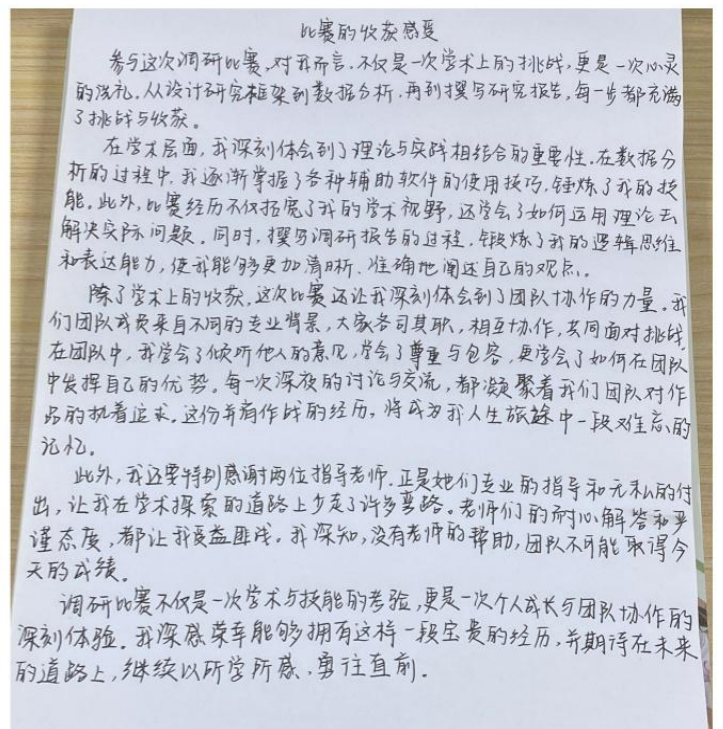 比赛的收获感受
参与这次调研比赛,对我而言,不仅是一次学术上的挑战,更是一次心灵
的洗礼。从设计研究框架到数据分析,再到撰写研究报告,每一步都充满
了挑战与收获。
在学术层面,我深刻体会到了理论与实践相结合的重要性。在数据分
析的过程中,我逐渐掌握了各种辅助软件的使用技巧,锤炼了我的技
能。此外,比赛经历不仅拓宽了我的学术视野,还学会了如何运用理论去
解决实际问题。同时,撰写调研报告的过程,锻炼了我的逻辑思维
和表达能力,使我能够更加清晰、准确地阐述自己的观点。
除了学术上的收获,这次比赛还让我深刻体会到了团队协作的力量。我
们团队成员来自不同的专业背景,大家各司其职,相互协作,共同面对挑战,
在团队中,我学会了倾听他人的意见,学会了尊重与包容,更学会了如何在团队
中发挥自己的优势。每一次深夜的讨论与交流,都凝聚着我们团队对作
品的执着追求。这份并肩作战的经历,将成为我人生旅途中一段难忘的
记忆。
此外,我还要特别感谢两位指导老师。正是她们专业的指导和无私的付
出,让我在学术探索的道路上少走了许多弯路。老师们的耐心解答和严
谨态度,都让我受益匪浅。我深知,没有老师的帮助,团队不可能取得今
天的成绩。
调研比赛不仅是一次学术与技能的考验,更是一次个人成长与团队协作的
深刻体验。我深感荣幸能够拥有这样一段宝贵的经历,并期待在未来
的道路上,继续以所学所感,勇往直前。